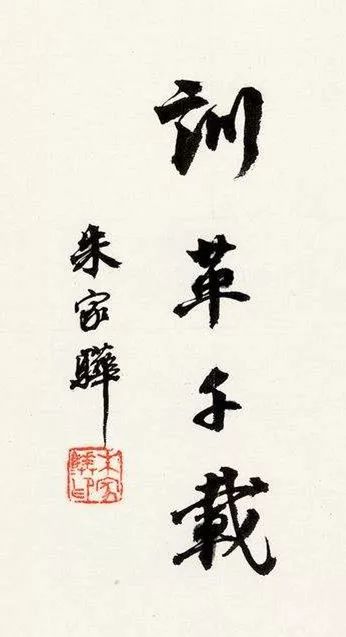 訓革千載
朱家驊
朱家驊印